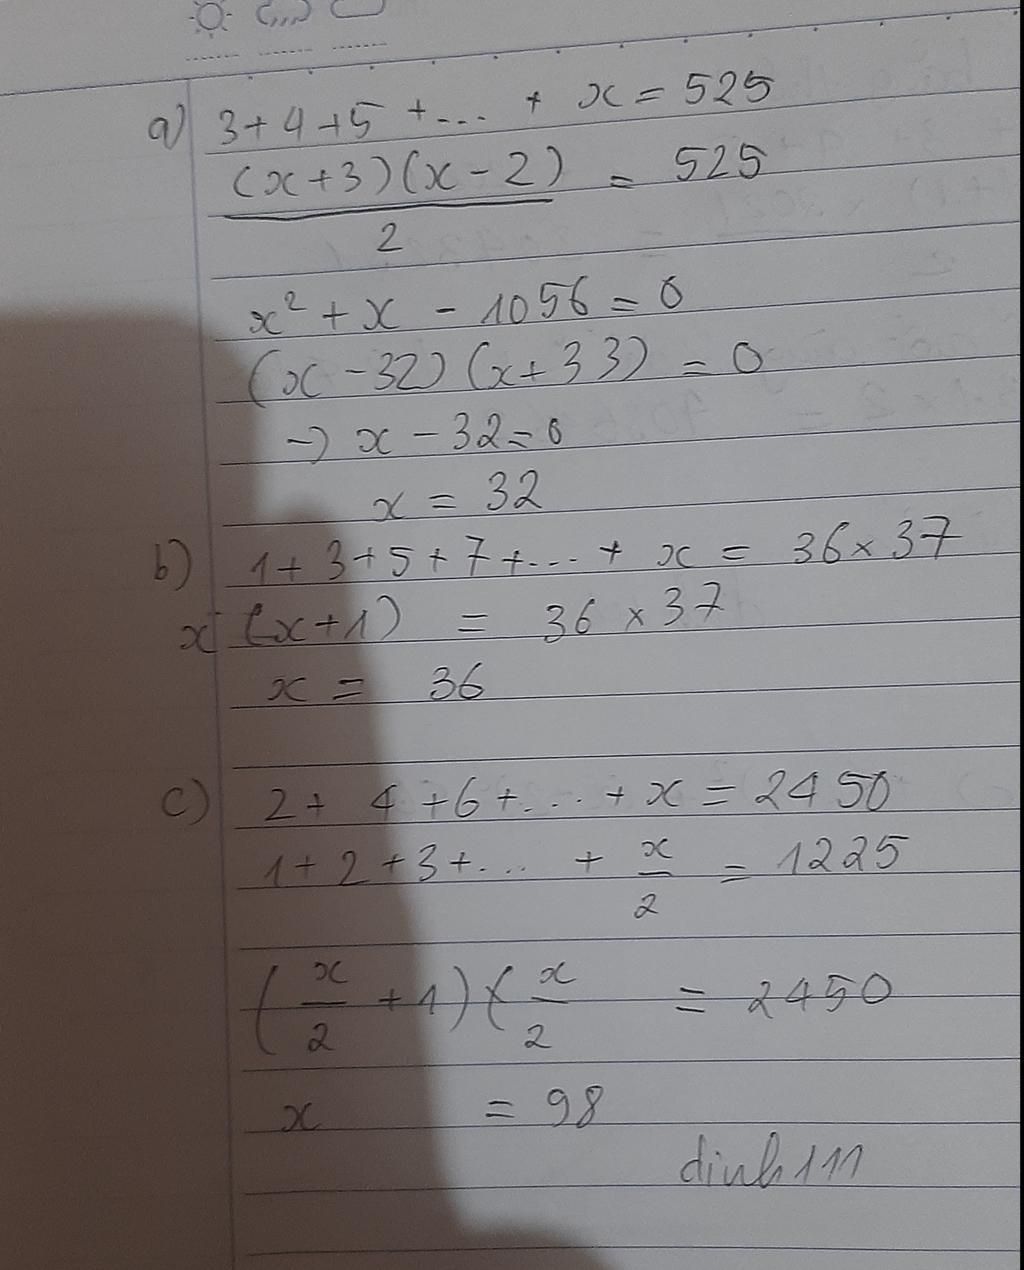 a) 3 + 4 + 5 + ... + x = 525
(x + 3)(x - 2) = 525
2
x² + x - 1056 = 0
(x - 32)(x + 33) = 0
→ x - 32 = 0
x = 32
b) 1 + 3 + 5 + 7 + ... + x = 36 × 37
x (x + 1) = 36 × 37
x = 36
c) 2 + 4 + 6 + ... + x = 2450
1 + 2 + 3 + ... + x/2 = 1225
(x/2 + 1) × x/2 = 2450
x = 98
dinh111